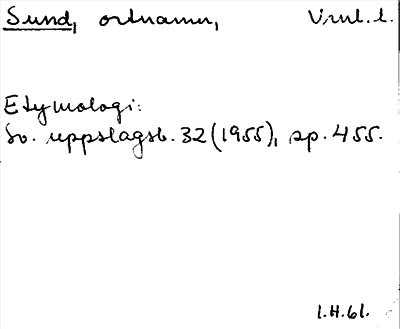 Sund, ortnamn, Vrml. l.
Etymologi:
Sv. uppslagsb. 32 (1955), sp. 455.
1.H.61.